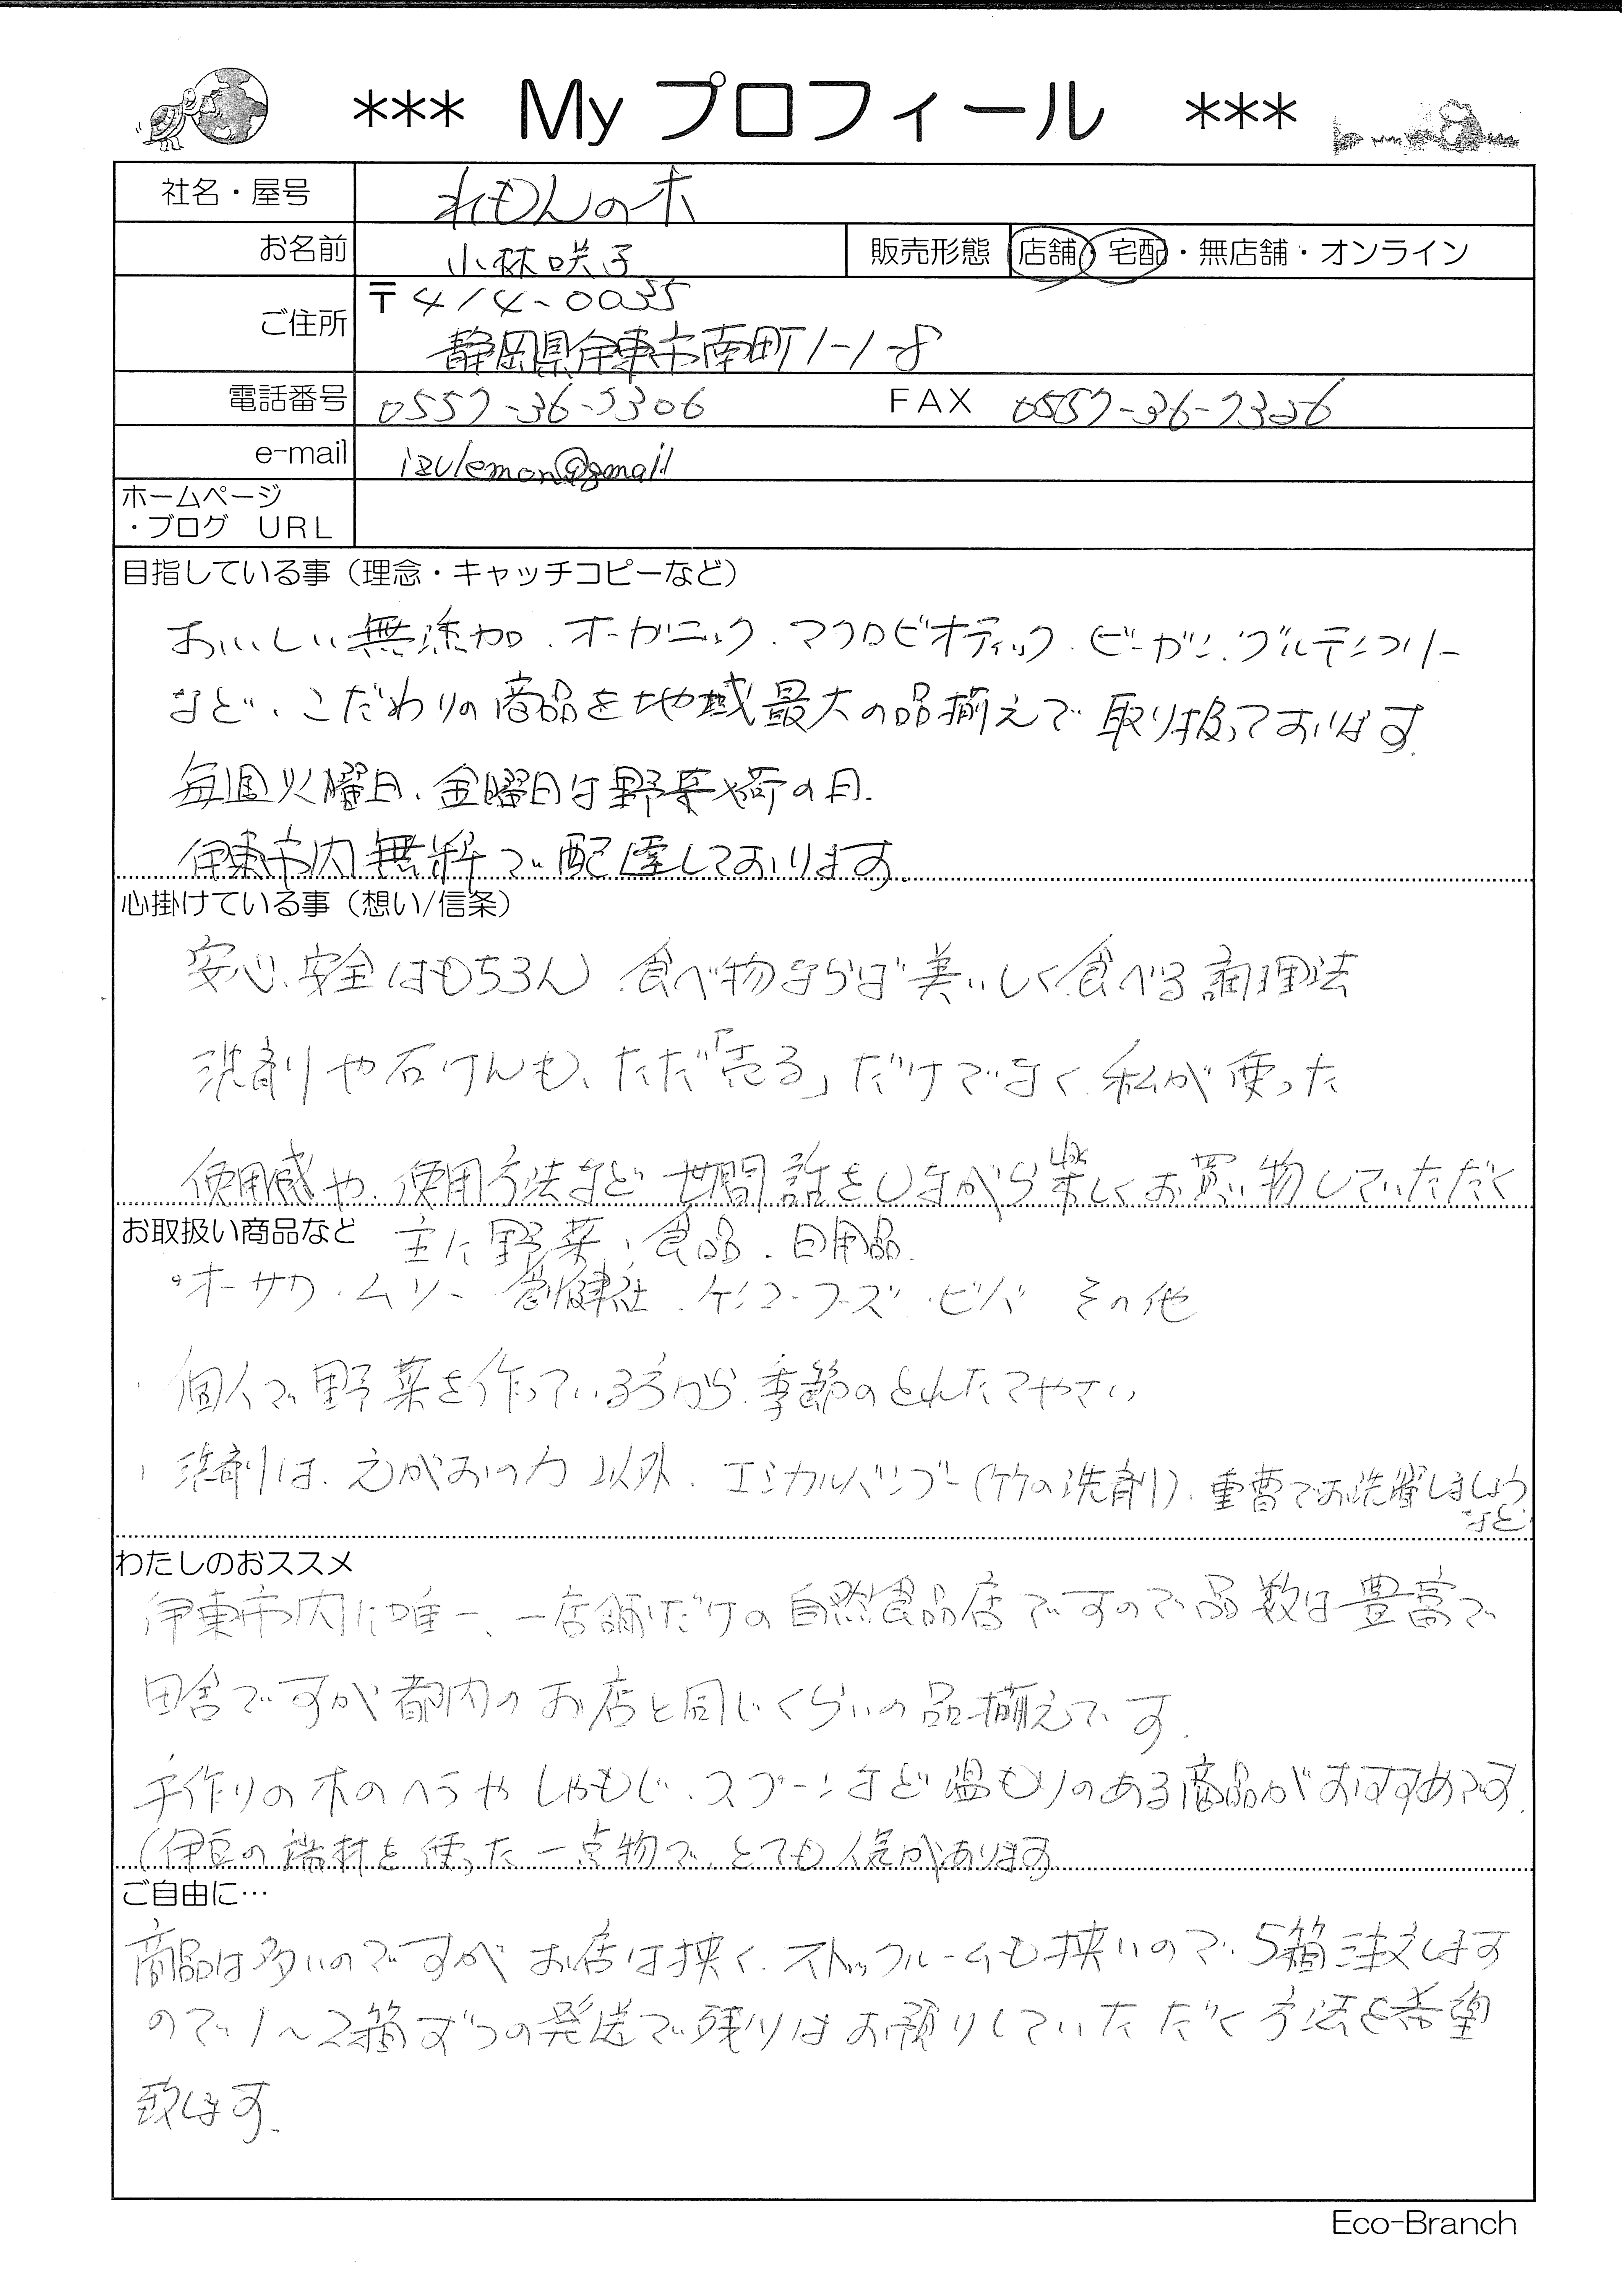 *** My プロフィール ***
社名・屋号 れもんの木
お名前 小林咲子 販売形態 店舗・宅配・無店舗・オンライン
ご住所 〒414-0035
静岡県伊東市南町1-1-8
電話番号 0557-36-7306 FAX 0557-36-7306
e-mail izulemon@gmail
ホームページ
・ブログ URL
目指している事（理念・キャッチコピーなど）
おいしい無添加、オーガニック、マクロビオティック、ビーガン、グルテンフリー
など、こだわりの商品を地域最大の品揃えで取り扱っております。
毎週火曜日、金曜日は野菜入荷の日。
伊東市内無料で配達しております。
心掛けている事（想い/信条）
安心、安全はもちろん 食べ物ならば美いしく食べる調理法
洗剤や石けんも、ただ「売る」だけでなく、私が使った
使用感や、使用方法など世間話をしながら楽しくお買い物していただく
お取扱い商品など 主に野菜、食品、日用品
・オーサワ・ムソー 創健社、ケンコーフーズ・ビバ その他
・個人で野菜を作っている方から、季節のとれたてやさい
・洗剤は、えがおの力以外、エシカルバンブー(竹の洗剤)、重曹でお洗濯しましょう
など
わたしのおススメ
伊東市内に唯一、一店舗だけの自然食品店ですので品数は豊富で
田舎ですが都内のお店と同じくらいの品揃えです。
手作りの木のヘラやしゃもじ、スプーンなど温もりのある商品がおすすめです。
(伊豆の端材を使った一点物で、とても人気があります
ご自由に…
商品は多いのですが お店は狭く、ストックルームも狭いので、5箱注文します
ので、1～2箱ずつの発送で残りはお預りしていただく方法を希望
致します。
Eco-Branch